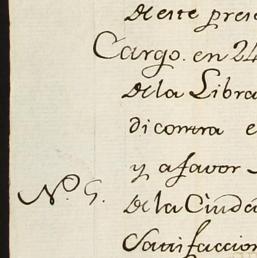 de este pres
Cargo. en 24
de la Libra
di contra e
y a favor
N.º 5. de la Ciuda
Satisfaccion